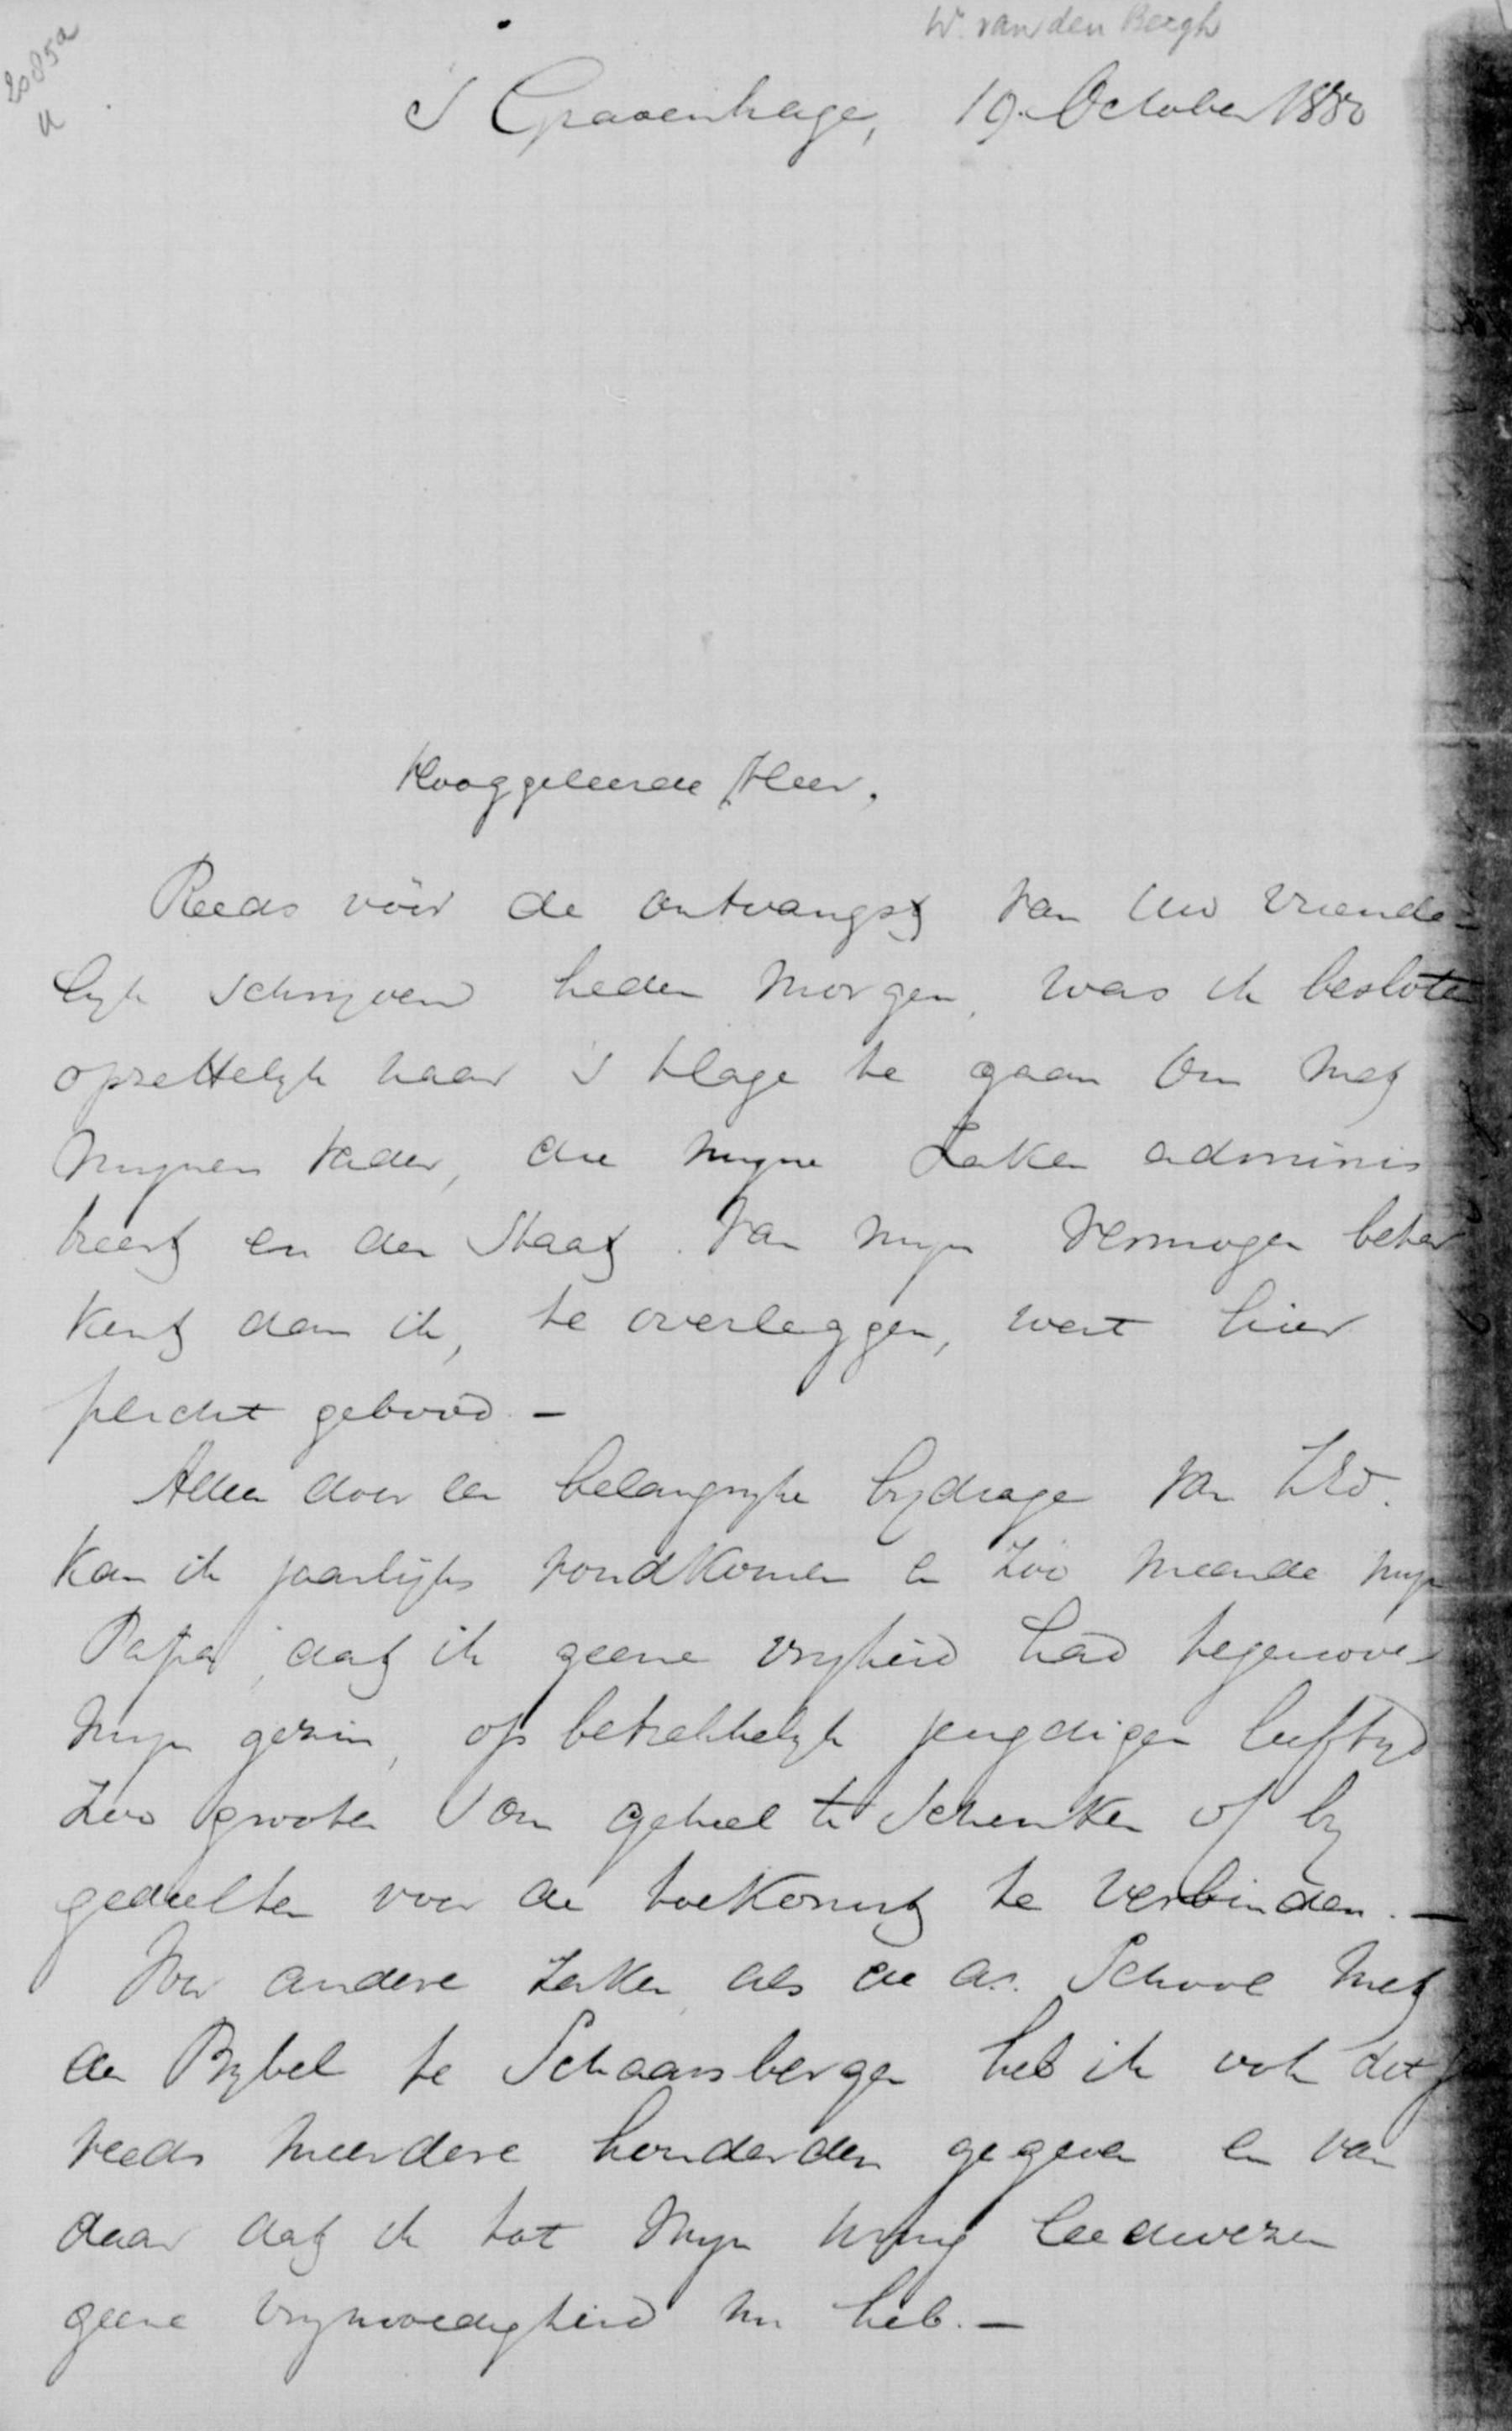 W. van den Bergh
2085a
's Gravenhage, 19. October 1880
Hooggeleerde Heer,
Reeds vóór de ontvangst van Uw vriende-
lyk schryven heden morgen, was ik besloten
opzettelyk naar 's Hage te gaan om met
mynen vader, die myne zaken adminis
treert en den staat van myn vermogen beter
kent dan ik, te overleggen, want hier
plicht gebood. —
Alleen door een belangryke bydrage van ZEd.
kan ik jaarlijks rondkomen en zoo meende myn
Papa, dat ik geene vryheid had tegenover
myn gezin, op betrekkelyk jeugdigen leeftyd
zoo grooten som geheel te schenken of by
gedeelten voor de toekomst te verbinden. —
Voor andere zaken, als de a.s. School met
den Bybel te Schaarsbergen heb ik ook dit j
reeds meerdere honderden gegeven en van
daar dat ik tot myn innig leedwezen
geene vrymoedigheid nu heb. —